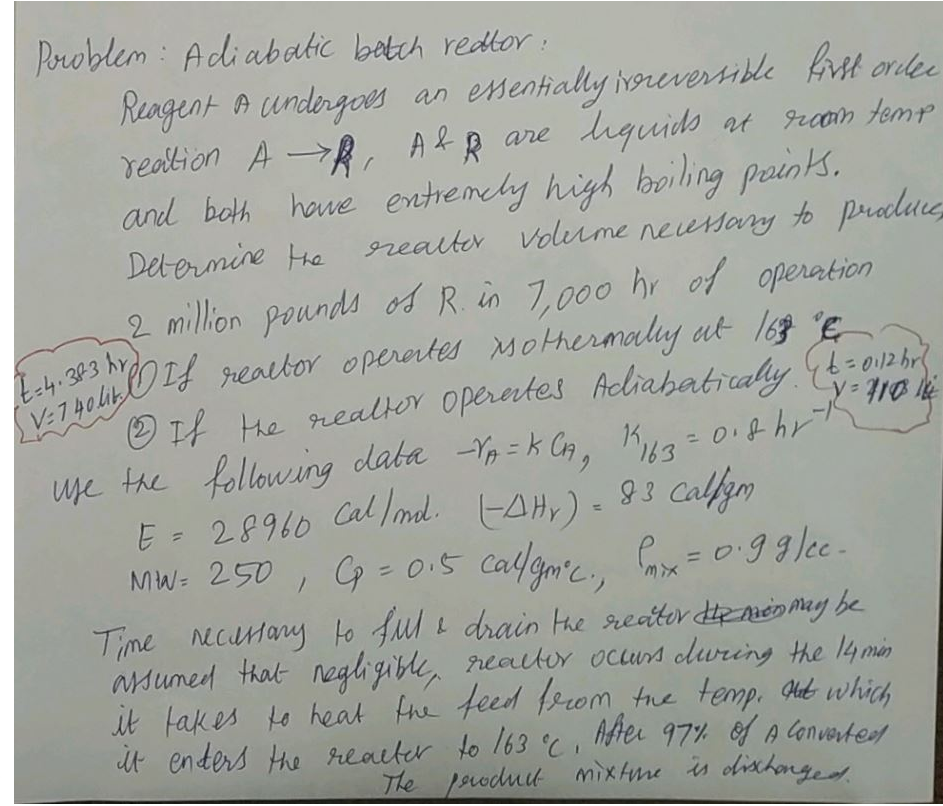 Problem : Adiabatic batch reactor :
Reagent A undergoes an essentially irreversible first order
reaction A → R, A & R are liquids at room temp
and both have extremely high boiling points.
Determine the reactor volume necessary to produce
2 million pounds of R. in 7,000 hr of operation
① If reactor operates isothermally at 163 °C
t=4.383 hr
V=740 lit.
② If the reactor operates Adiabatically.
t=0.12 hr
V=
use the following data -rA = k CA, K163 = 0.8 hr⁻¹
E = 28960 Cal/mol. (-ΔHr) = 83 Cal/gm
MW= 250 , Cp = 0.5 cal/gm°c., ρmix = 0.9 g/cc.
Time necessary to full & drain the reactor may be
assumed that negligible, reactor occurs during the 14 min
it takes to heat the feed from the temp. at which
it enters the reactor to 163 °C. After 97% of A Converted
The product mixture is discharged.